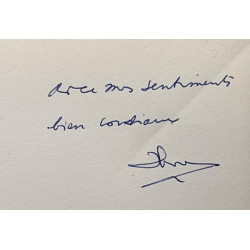 avec mes sentiments
bien cordiaux